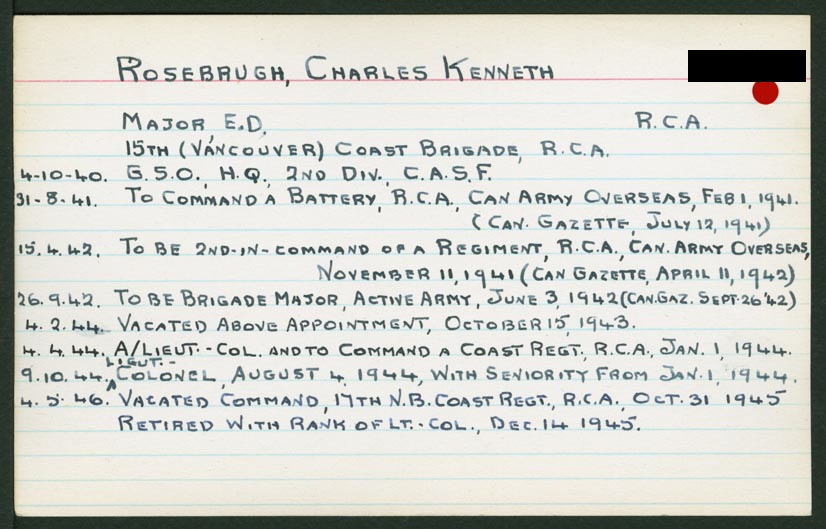 ROSEBRUGH, CHARLES KENNETH
MAJOR, E.D. R.C.A.
15TH (VANCOUVER) COAST BRIGADE, R.C.A.
4-10-40. G.S.O., H.Q., 2ND DIV., C.A.S.F.
31-8-41. TO COMMAND A BATTERY, R.C.A., CAN ARMY OVERSEAS, FEB 1, 1941.
(CAN. GAZETTE, JULY 12, 1941)
15.4.42. TO BE 2ND-IN-COMMAND OF A REGIMENT, R.C.A., CAN. ARMY OVERSEAS,
NOVEMBER 11, 1941 (CAN GAZETTE, APRIL 11, 1942)
26.9.42. TO BE BRIGADE MAJOR, ACTIVE ARMY, JUNE 3, 1942 (CAN. GAZ. SEPT. 26 '42)
4.2.44. VACATED ABOVE APPOINTMENT, OCTOBER 15, 1943.
4.4.44. A/LIEUT.-COL. AND TO COMMAND A COAST REGT., R.C.A., JAN. 1, 1944.
9.10.44. LIEUT.-COLONEL, AUGUST 4, 1944, WITH SENIORITY FROM JAN. 1, 1944.
4.5.46. VACATED COMMAND, 17TH N.B. COAST REGT., R.C.A., OCT. 31 1945
RETIRED WITH RANK OF LT.-COL., DEC. 14 1945.